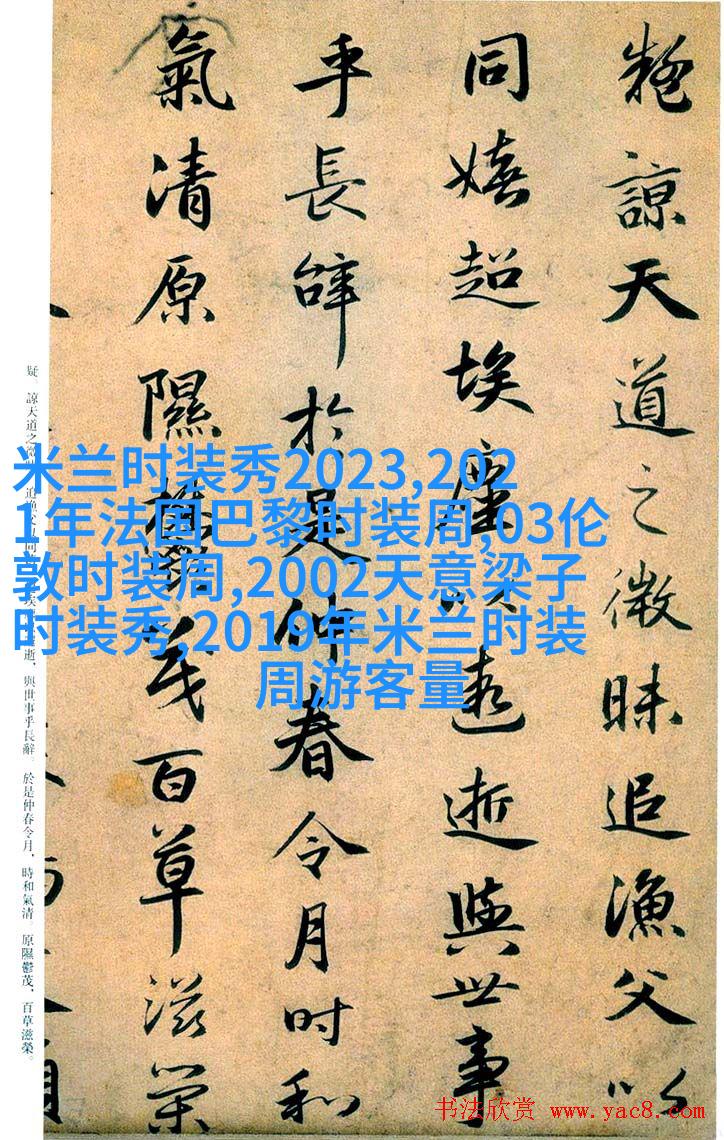 疑諒天道之微昧追漁父以
同嬉超埃塵以遐逝與世事
乎長辭於是仲春令月時和
氣清原隰鬱茂百草滋榮
米兰时装秀2023,202
1年法国巴黎时装周,03伦
敦时装周,2002天意梁子
时装秀,2019年米兰时装
周游客量
疑。諒天道之逝，與世事乎長辭。於是仲春令月，時和氣清。原隰鬱茂，百草滋榮。
书法欣赏 www.yac8.com